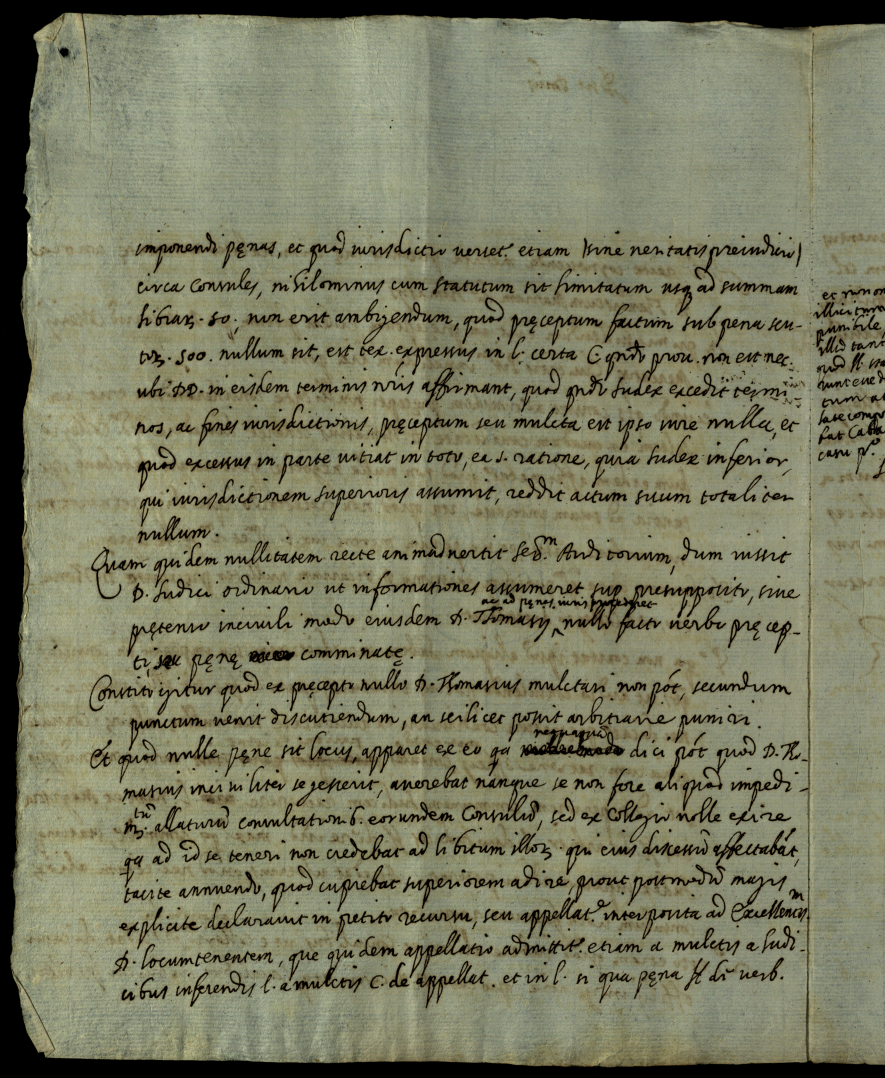 imponendi pęnas, et quod iurisdictio verset.r etiam (sine veritatis preiudicio)
circa Consules, nihilominus cum statutum sit limitatum usq ad summam
librar. 50., non erit ambigendum, quod pręceptum factum sub pena scu-
tor. 500. nullum sit, est tex. expressus in l. certa C. qndo prou. non est nec.
ubi DD. in eisdem terminis nris affirmant, quod qndo Iudex excedit termi-
nos, ac fines iurisdictionis, pręceptum seu mulcta est ipso iure nulla, et
quod excessus in parte vitiat in toto, ea s. ratione, quia Iudex inferior,
qui iurisdictionem superioris assumit, reddit actum suum totaliter
nullum.
Quam quidem nullitatem recte animadvertit Ser.m Auditorium, dum iussit
D. Iudici ordinario ut informationes assumeret sup presupposito, sive
ac ad pęnas iuris procederet
pretenso incivili modo eiusdem D. Thomasij, nullo facto verbo pręcep-
ti, seu pęnę comminatę.
Constito igitur quod ex pręcepto nullo D. Thomasius mulctari non pót, secundum
punctum venit discutiendum, an scilicet possit arbitrarie puniri.
nequaquā
Et quod nulle pęne sit locus, apparet ex eo qa dici pót quod D. Tho-
masius inciviliter se gesserit, asserebat nanque se non fore aliquod impedi-
m. tū allaturū consultation.b. eorundem Consulū, sed ex Collegio nolle exire
qa ad id se teneri non credebat ad libitum illor. qui eius discessū affectabāt,
tacite annuendo, quod cupiebat superiorem adire, prout postmodū magis
explicite declaravit in petito recursu, seu appellat.e interposita ad Excellentis.m
D. Locumtenentem, que quidem appellatio admittit.r etiam a mulctis a Iudi-
cibus inferendis l. a mulctis C. de appellat. et in l. si qua pęna ff. de verb.
et
illicitum
punibile
illud tant
quod ff.
casu p.o